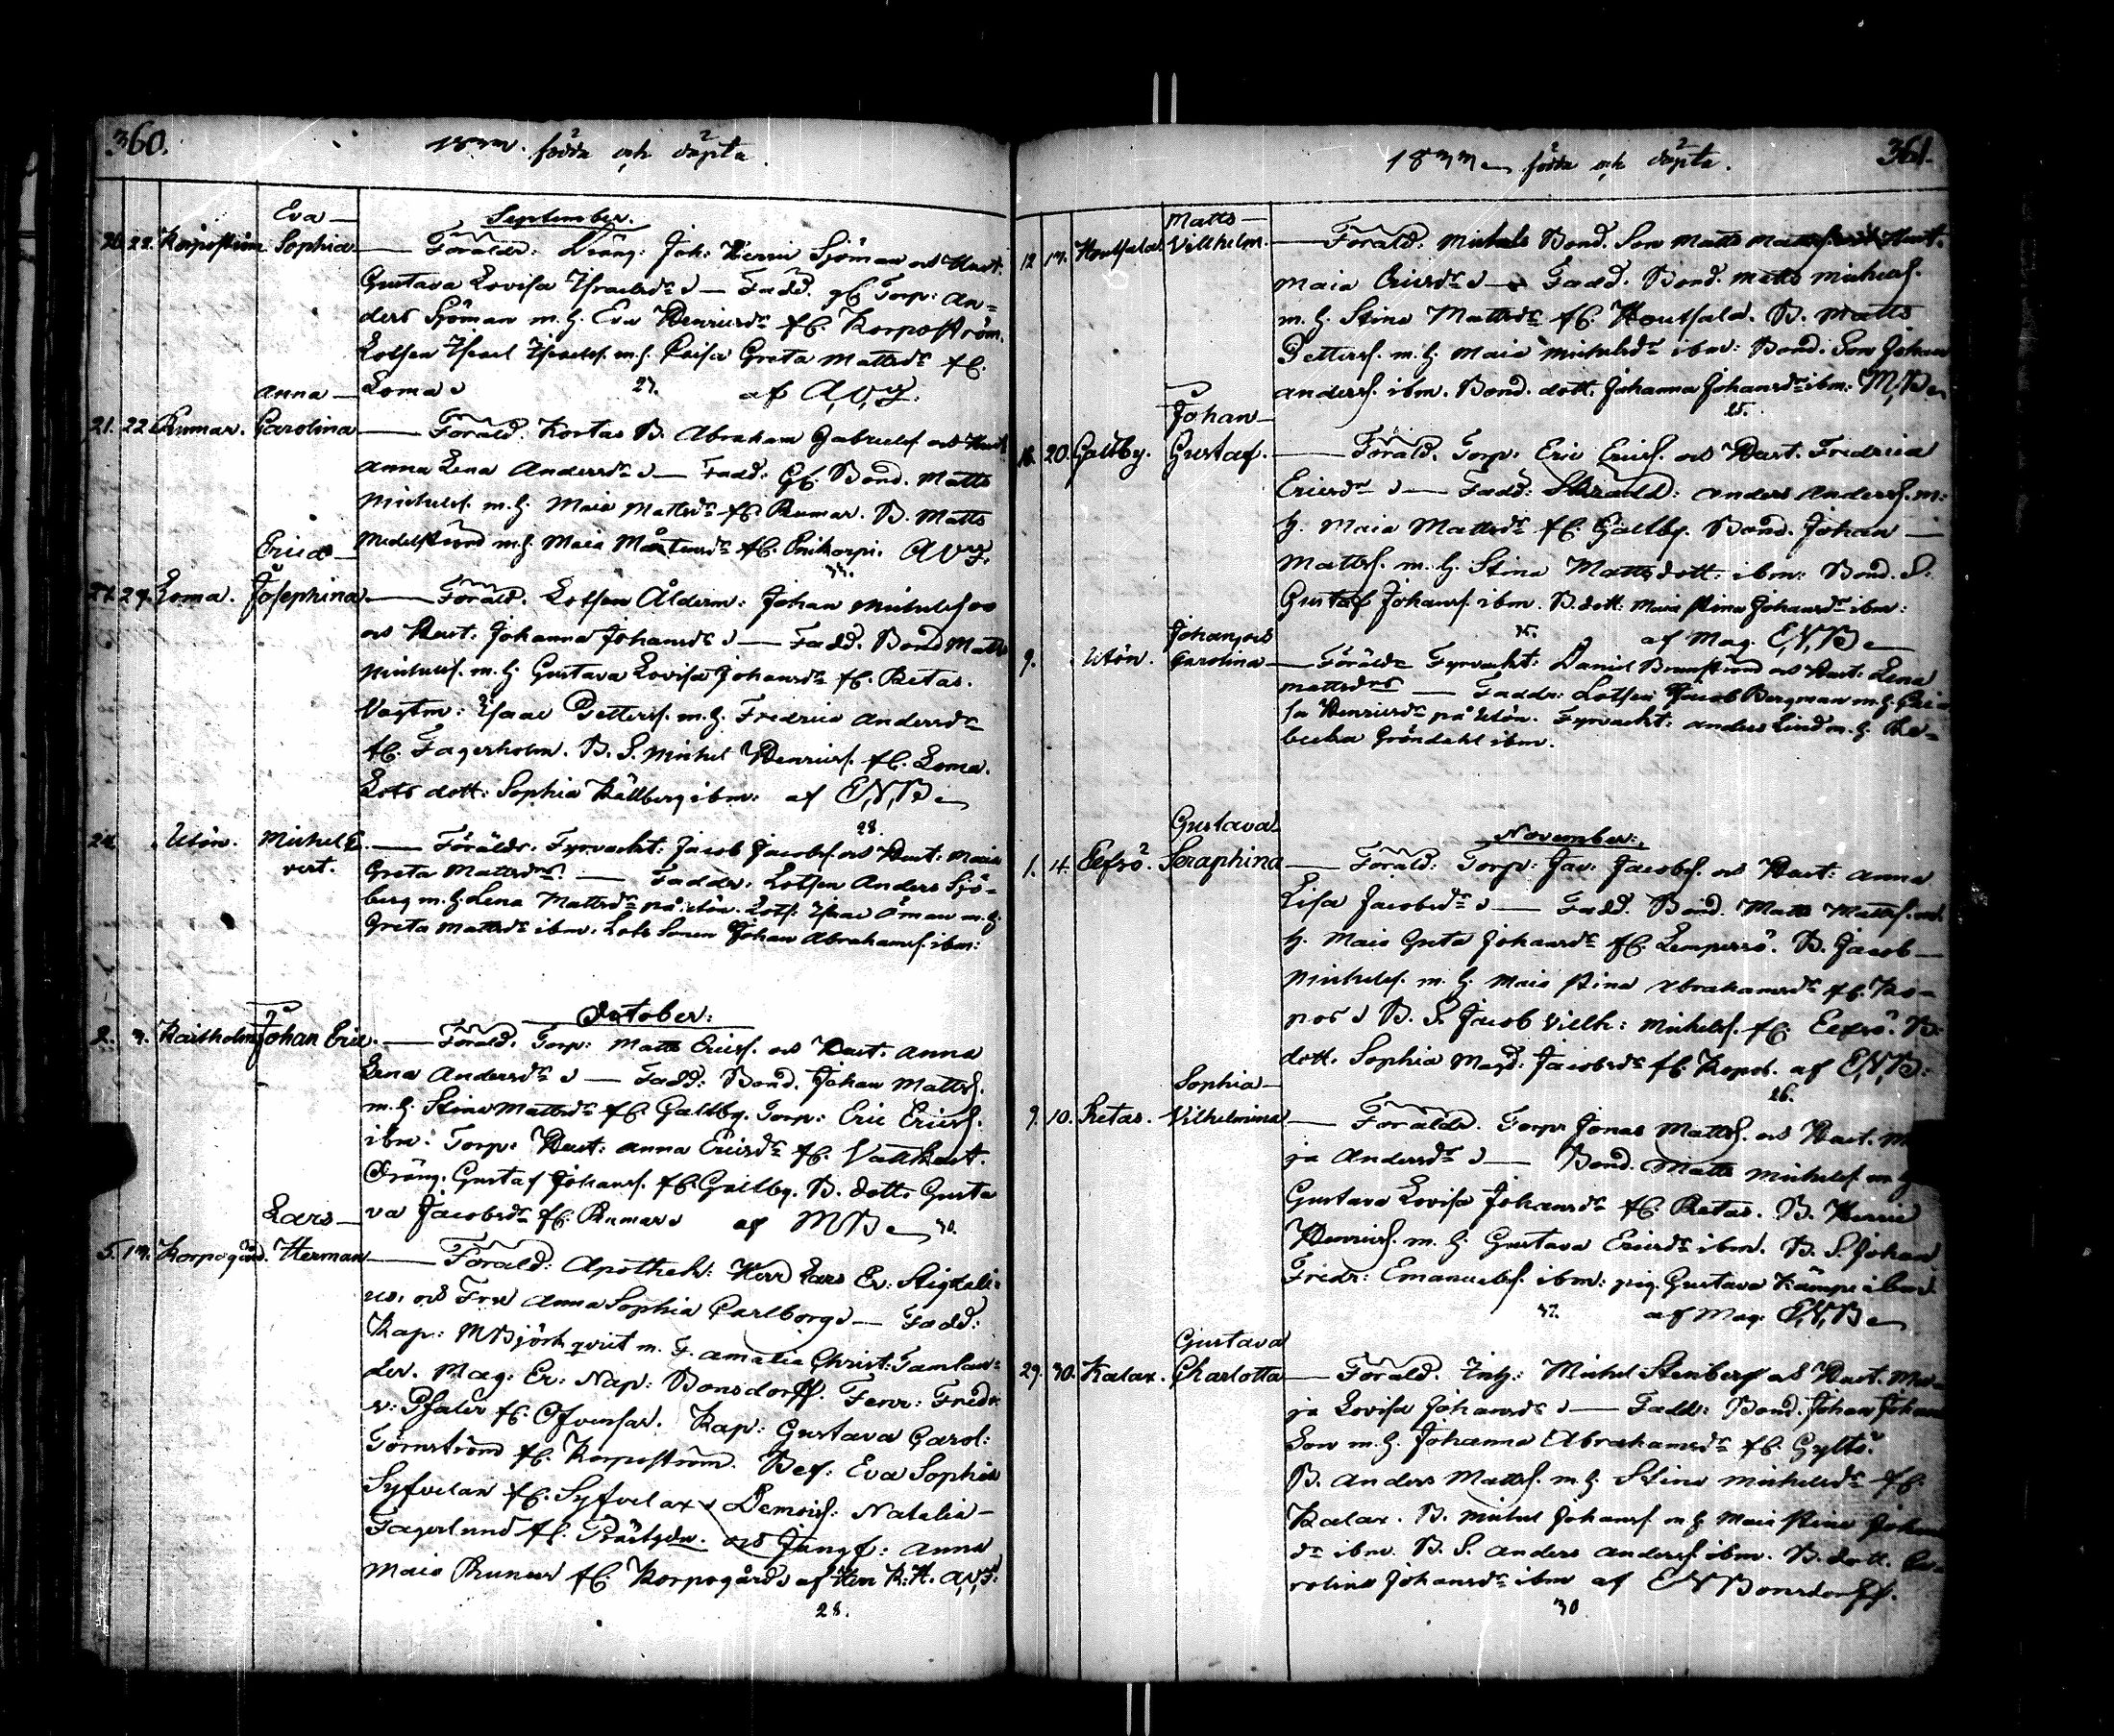 360.
1833. födda och döpta.
September.
Eva
20. 22. Korpoström Sophia — Föräldr: Dräng: Joh: Henric Sjöman och Hust.
Gustava Lovisa Israelsdr — Fadd. gf. Torp: An=
ders Sjöman m. h. Eva Henricsdr fr. Korpoström.
Lotsen Israel Israelss. m. h. Caisa Greta Mattsdr fr.
Anna — Loma 27. af A.V.
21. 22. Rumar. Carolina — Föräld. Kortas B. Abraham Gabrielss. och Hust.
Anna Lena Andersdr — Fadd: Gf. Bond. Matts
Michelss. m. h. Maia Mattsdr fr. Rumar. B. Matts
Erica — m. h. Maia Mårtensdr fr.
27. 29. Loma. Josephina. — Föräld. Lotsen Ålderm: Johan Michelsson
och Hust. Johanna Johansdr — Fadd. Bond Matts
Michelss. m. h. Gustava Lovisa Johansdr fr. Retas.
Vagtm: Isaac Petterss. m. h. Fredrica Andersdr
fr. Fagerholm. B. S. Michel Henricss. fr. Loma.
Lots dott: Sophia Källberg ibm: af E.N.B
28.
24. Utön. Michel E — Föräldr. Fyrvackt: Jacob Jacobss. och Hust: Maria
vert. Greta Mattsdr — Faddr. Lotsen Anders Sjö=
berg m. h. Lena Mattsdr på Utön. Lots: Isac Öman m. h.
Greta Mattsdr ibm. Lots Sonen Johan Abrahamss. ibm:
October:
2. 3. Kaitholm Johan Eric. — Föräld. Torp: Matts Ericss. och Hust. Anna
Lena Andersdr — Fadd: Bond. Johan Mattss.
m. h. Stina Mattsdr fr. Galtby. Torp: Eric Ericss.
ibm. Torp: Hust: Anna Ericsdr fr. Vattkast.
Dräng. Gustaf Johanss. fr. Galtby. B. dott. Gusta
Lars — va Jacobsdr fr. Rumar af MB 30.
5. 13. Korpogård. Herman — Föräld: Apothek: Herr Lars Er: Stigzeli=
us. och Fru Anna Sophia Carlborg — Fadd:
Kap: M Björkqvist m. F. Amalia Christ: Tamlan=
der. Mag: Er: Nap: Bonsdorff. Fenr: Fredr.
v: Pfaler fr. Ofvensar. Kap: Gustava Carol:
Törnström fr. Korpoström. Bef: Eva Sophia
Syfvelan fr. Syfvelax Demois: Natalia
Fagerlund fr. Prästgdn. och Jungf: Anna
Maia Runeer fr. Korpogård af Herr K. H. A.V.
28.
1833 födda och döpta.
361.
Matts —
12 13. Houtsala. Vilhelm. — Föräld. Michels Bond. Son Matts Mattss. och Hust.
Maia Ericsdr — Fadd. Bond. Matts Michelss.
m. h. Stina Mattsdr fr. Houtsala. B. Matts
Petterss. m. h. Maia Michelsdr ibm: Bond. Son Johan
Anderss. ibm. Bond. dott. Johanna Johansdr ibm. M.B
25.
Johan —
16. 20. Galtby. Gustaf. — Föräld. Torp: Eric Ericss. och Hust. Fredrica
Ericsdr — Fadd: Anders Anderss. m:
h. Maia Mattsdr fr. Galtby. Bond. Johan —
Mattss. m. h. Stina Mattsdott: ibm: Bond. S.
Gustaf Johanss. ibm. B. dott: Maia Stina Johansdr ibm:
35. af Mag. E.N.B
9. Utön. Carolina — Föräldr Fyrvackt: Daniel Brunström och Hust: Lena
Mattsdr — Faddr: Lotsen Jacob Bergman m. h. Cai
sa Henricsdr på Utön. Fyrvackt: Anders Lind m. h. Re=
becka Gröndahl ibm.
November:
Gustava
1. 4. Eefsö. Seraphina — Föräld: Torp: Gav: Jacobss. och Hust: Anna
Lisa Jacobsdr — Fadd. Bond. Matts Mattss. m.
h. Maia Greta Johansdr fr. Lempersö. B. Jacob —
Michelss. m. h. Maia Stina Abrahamsdr fr. Ko=
pos B. S. Jacob Vilh: Michelss. fr. Eefsö. B.
dott. Sophia Magd: Jacobsdr fr. Kopos. af E.N.B.
26.
Sophia —
9. 10. Retas. Vilhelmina — Föräldr. Torpr Jonas Mattss. och Hust. Ma
ja Andersdr — Bond. Matts Michelss. m. h
Gustava Lovisa Johansdr fr. Retas. B. Henric
Henricss. m. h. Gustava Ericsdr ibm. B. S. Johan
Fridr: Emanuelss. ibm: pig. Gustava Kämpe ibm
37. af Mag. E.N.B
Gustava
29. 30. Kalax. Charlotta — Föräld. Inh: Michel Stenberg och Hust. Ma=
ja Lovisa Johansdr — Faddr: Bond. Johan Johans
Son m. h. Johanna Abrahamsdr fr. Gyltö.
B. Anders Mattss. m. h. Stina Michelsdr fr.
Kalax. B. Michel Johanss. m. h. Maia Stina Johans
dr ibm. B. S. Anders Anderss. ibm. B. dott. Ca=
rolina Johansdr ibm af E N Bonsdorff.
30